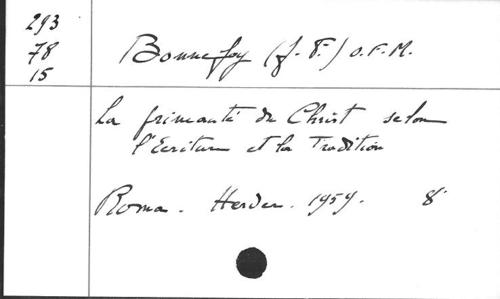 293
78
15
Bonnefoy (J. F.) O.F.M.
La primauté du Christ selon
l'Ecriture et la Tradition
Roma. Herder. 1959. 8°